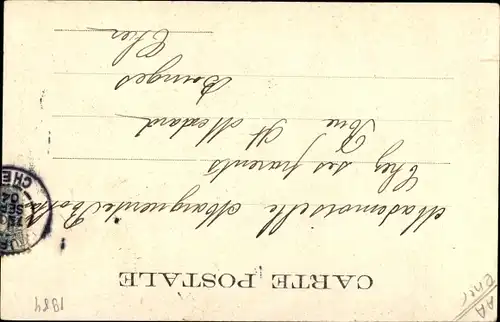 CARTE POSTALE
Mademoiselle Marguerite
Chez ses parents
Rue St Médard
Bourges
Cher
CHE
1984
AA
Cher